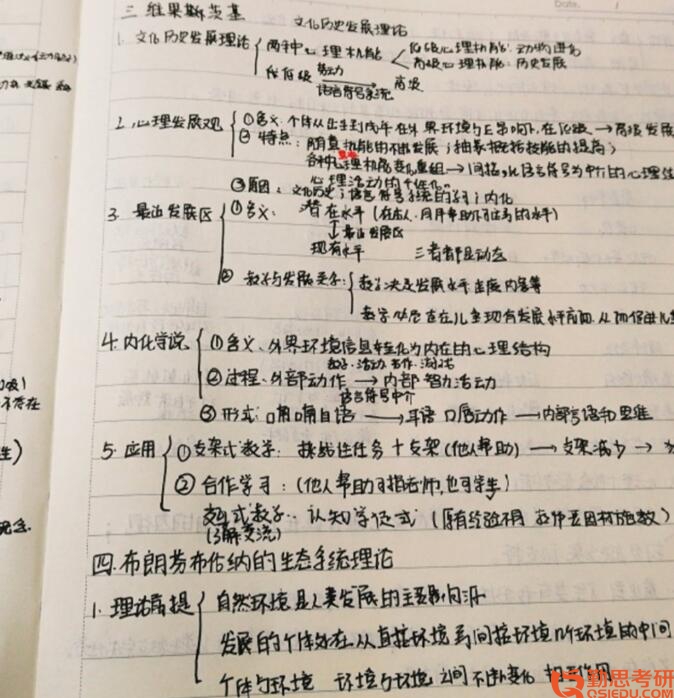 三 维果斯茨基
文化历史发展理论
1. 文化历史发展理论 { 两种心理机能 低级心理机能: 动物进化
高级心理机能: 历史发展
从低级 劳动 语言符号系统 → 高级
2. 心理发展观 { ①含义: 个体从出生到成年 在外界环境与 影响下, 在低级 → 高级发展
② 特点: 随意机能的不断发展; 抽象概括技能的提高;
各种心理机能变化重组 → 间接, 以语言符号为中介的心理结
心理活动的个性化。
③ 原因: 文化历史; 语言符号系统的学习; 内化
3. 最近发展区 { ① 含义: 潜在水平 (在他人、同伴帮助下可达到的水平)
↕ 最近发展区
现有水平 三者都是动态
② 教学与发展关系: { 教学决定发展水平 速度 内容等
教学 在儿童现有发展水平前面, 从而促进儿童
4. 内化学说 { ① 含义、外界环境信息转化为内在的心理结构
教学、活动
② 过程、外部动作 → 内部智力活动
语言符号中介
③ 形式: 喃喃自语 → 耳语 口唇动作 → 内部言语和思维
5. 应用 { ① 支架式教学: 挑战性任务 + 支架 (他人帮助) → 支架减少 →
② 合作学习: (他人帮助可指老师, 也可学生)
交互式教学、认知学徒式 (原有经验不同
(了解交流)
四. 布朗芬布伦纳的生态系统理论
1. 理论前提 { 自然环境是人类发展的主要影响源
发展的个体处在从直接环境到间接环境几个环境的中间
个体与环境 环境与环境 之间不断变化 相互作用
勤思考研
QSIEDU.COM